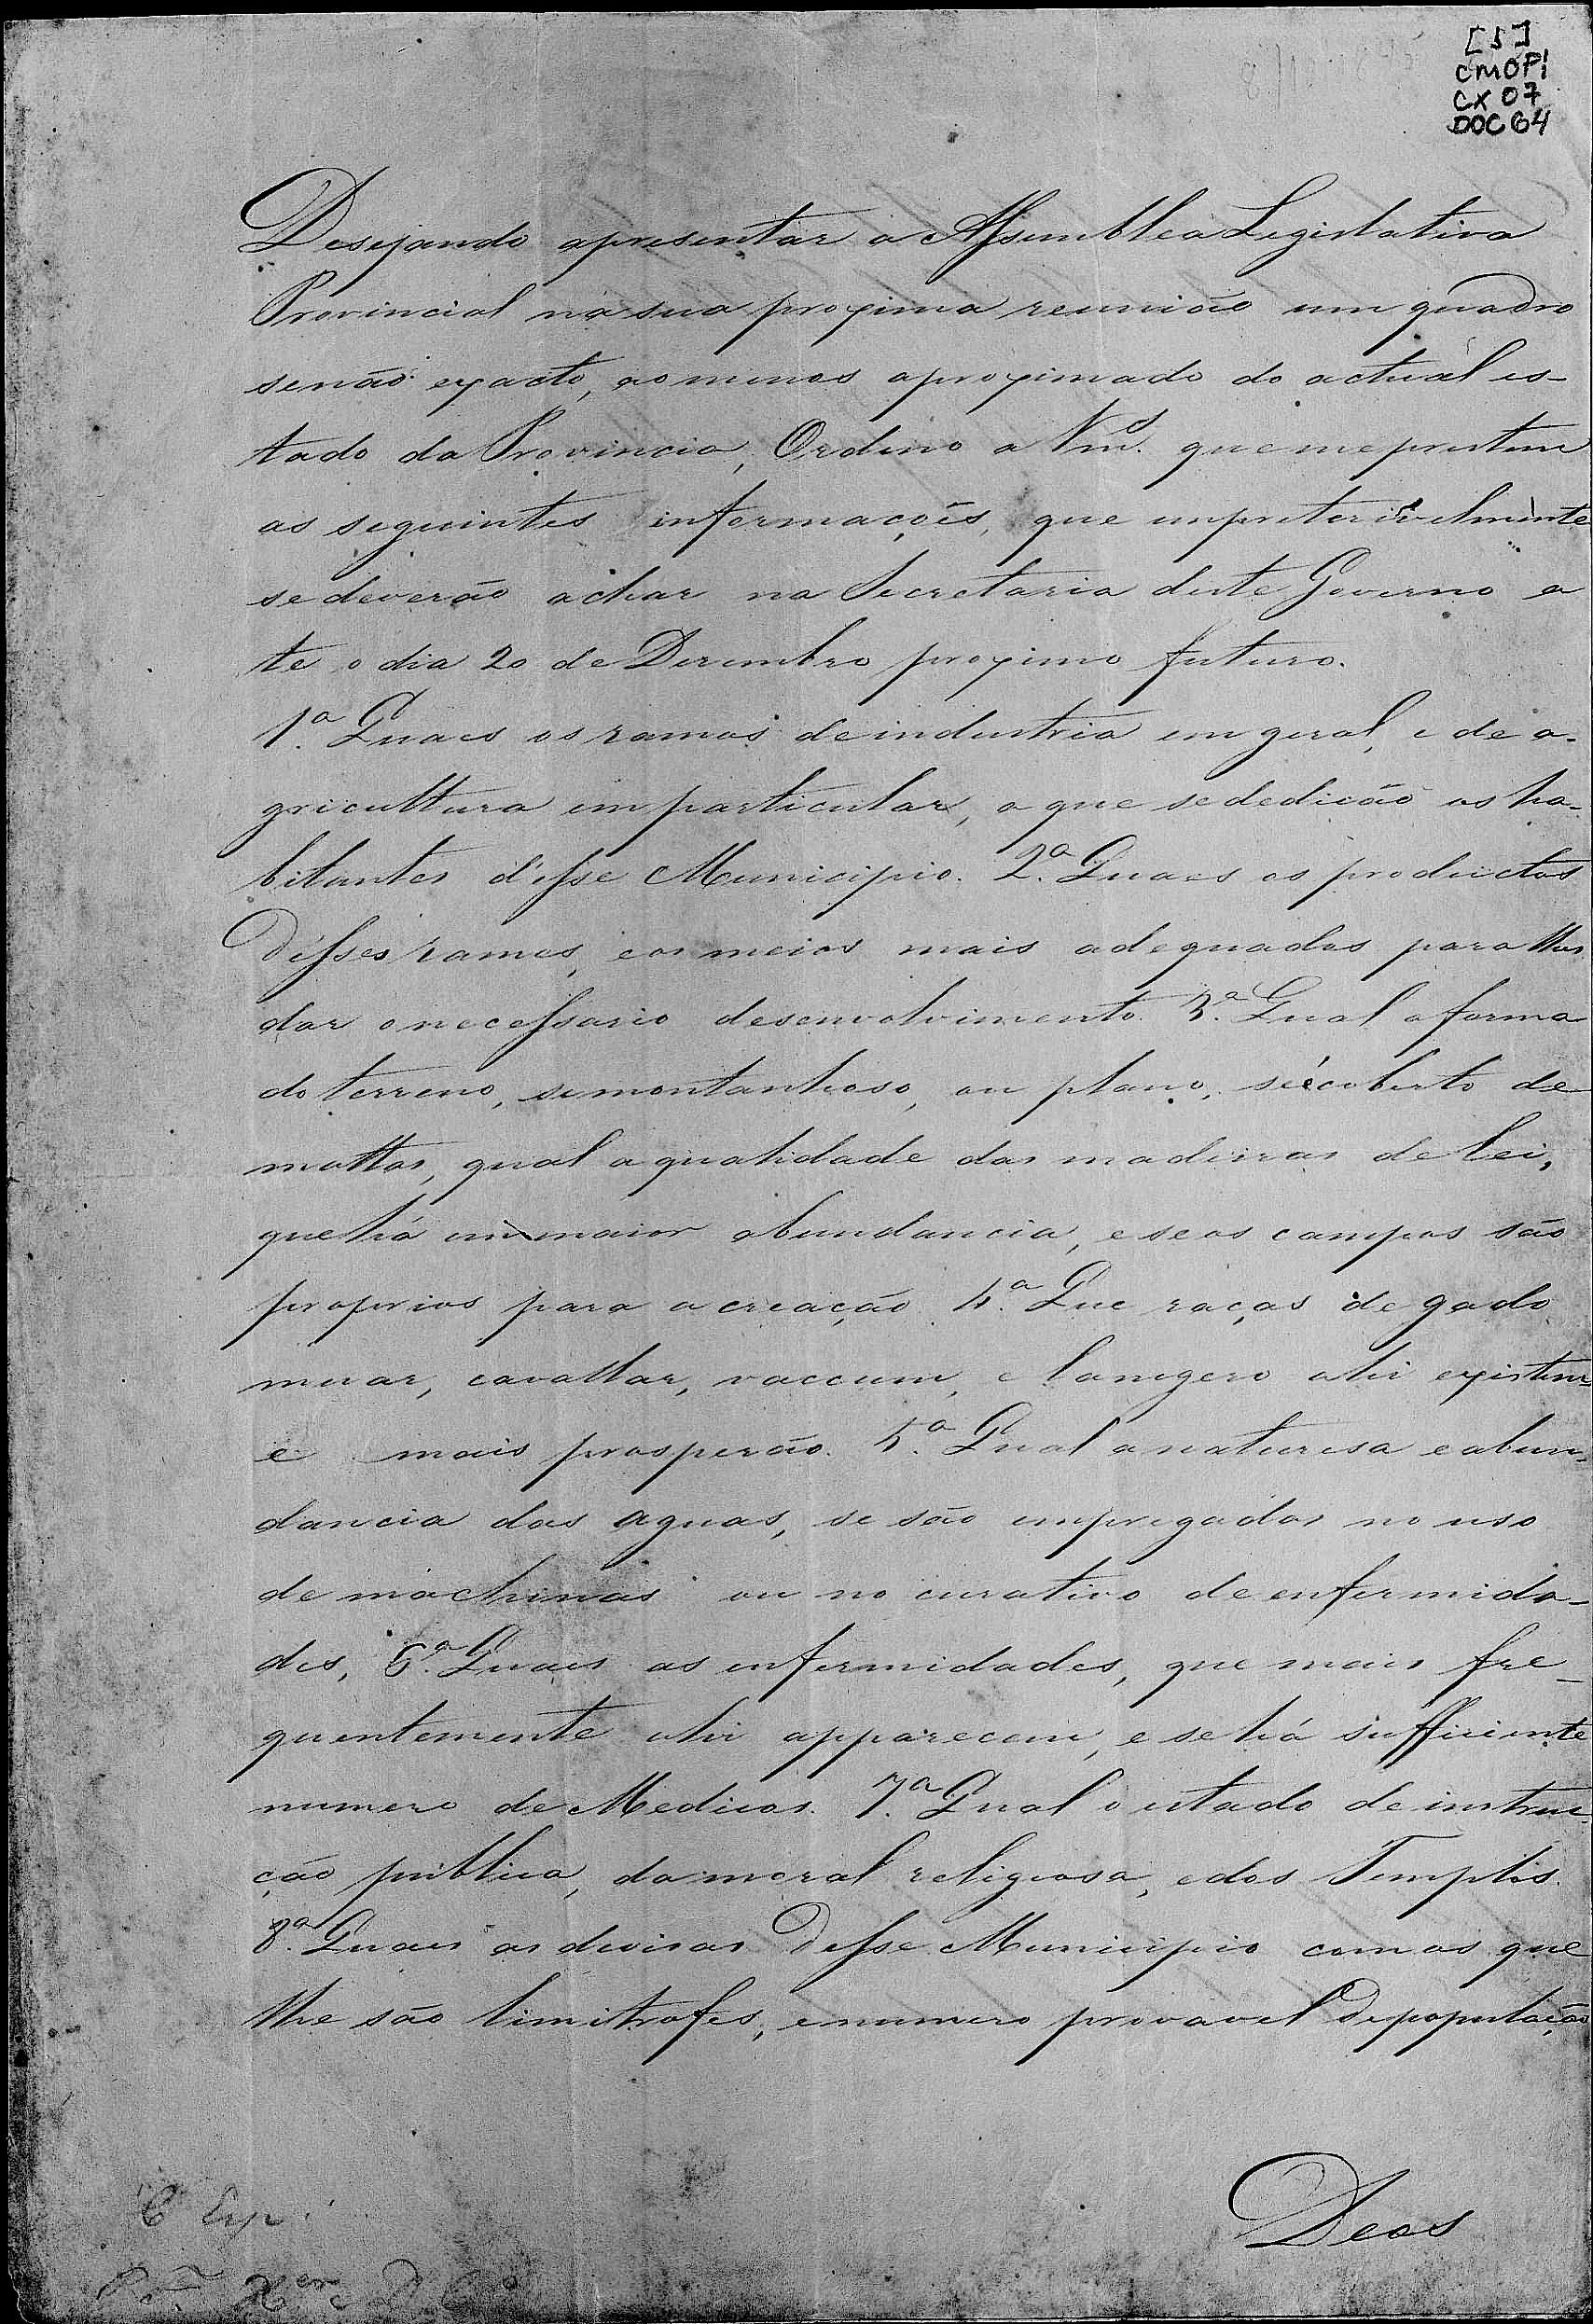 [5]
CMOPI
CX 07
DOC 64
Desejando apresentar a Assemblea Legislativa
Provincial na sua proxima reunião um quadro
senão exacto, ao menos aproximado do actual es-
tado da Provincia, Ordeno a Vm.ces que me prestem
as seguintes informações, que impreterivelmente
se deverão achar na Secretaria deste Governo a
te o dia 20 de Dezembro proximo futuro.
1.ª Quaes os ramos de industria em geral, e de a-
gricultura em particular, a que se dedicão os ha-
bitantes d'esse Municipio. 2.ª Quaes os productos
d'esses ramos, e os meios mais adequados para lhes
dar o necessario desenvolvimento. 3.ª Qual a forma
do terreno, se montanhoso, ou plano, se é coberto de
mattas, qual a qualidade das madeiras de lei,
que há em maior abundancia, e se os campos são
proprios para a creação. 4.ª Que raças de gado
muar, cavallar, vaccum, e lanigero ahi existem
e mais prosperão. 5.ª Qual a naturesa e abun-
dancia das aguas, se são empregadas no uso
de machinas ou no curativo de enfermida-
des, 6.ª Quaes as enfermidades, que mais fre-
quentemente ahi apparecem, e se há sufficiente
numero de Medicos. 7.ª Qual o estado de instruc-
ção publica, da moral religiosa, e dos Templos.
8.ª Quaes as divisas desse Municipio com os que
lhe são limitrofes, e numero provavel de população
Deos